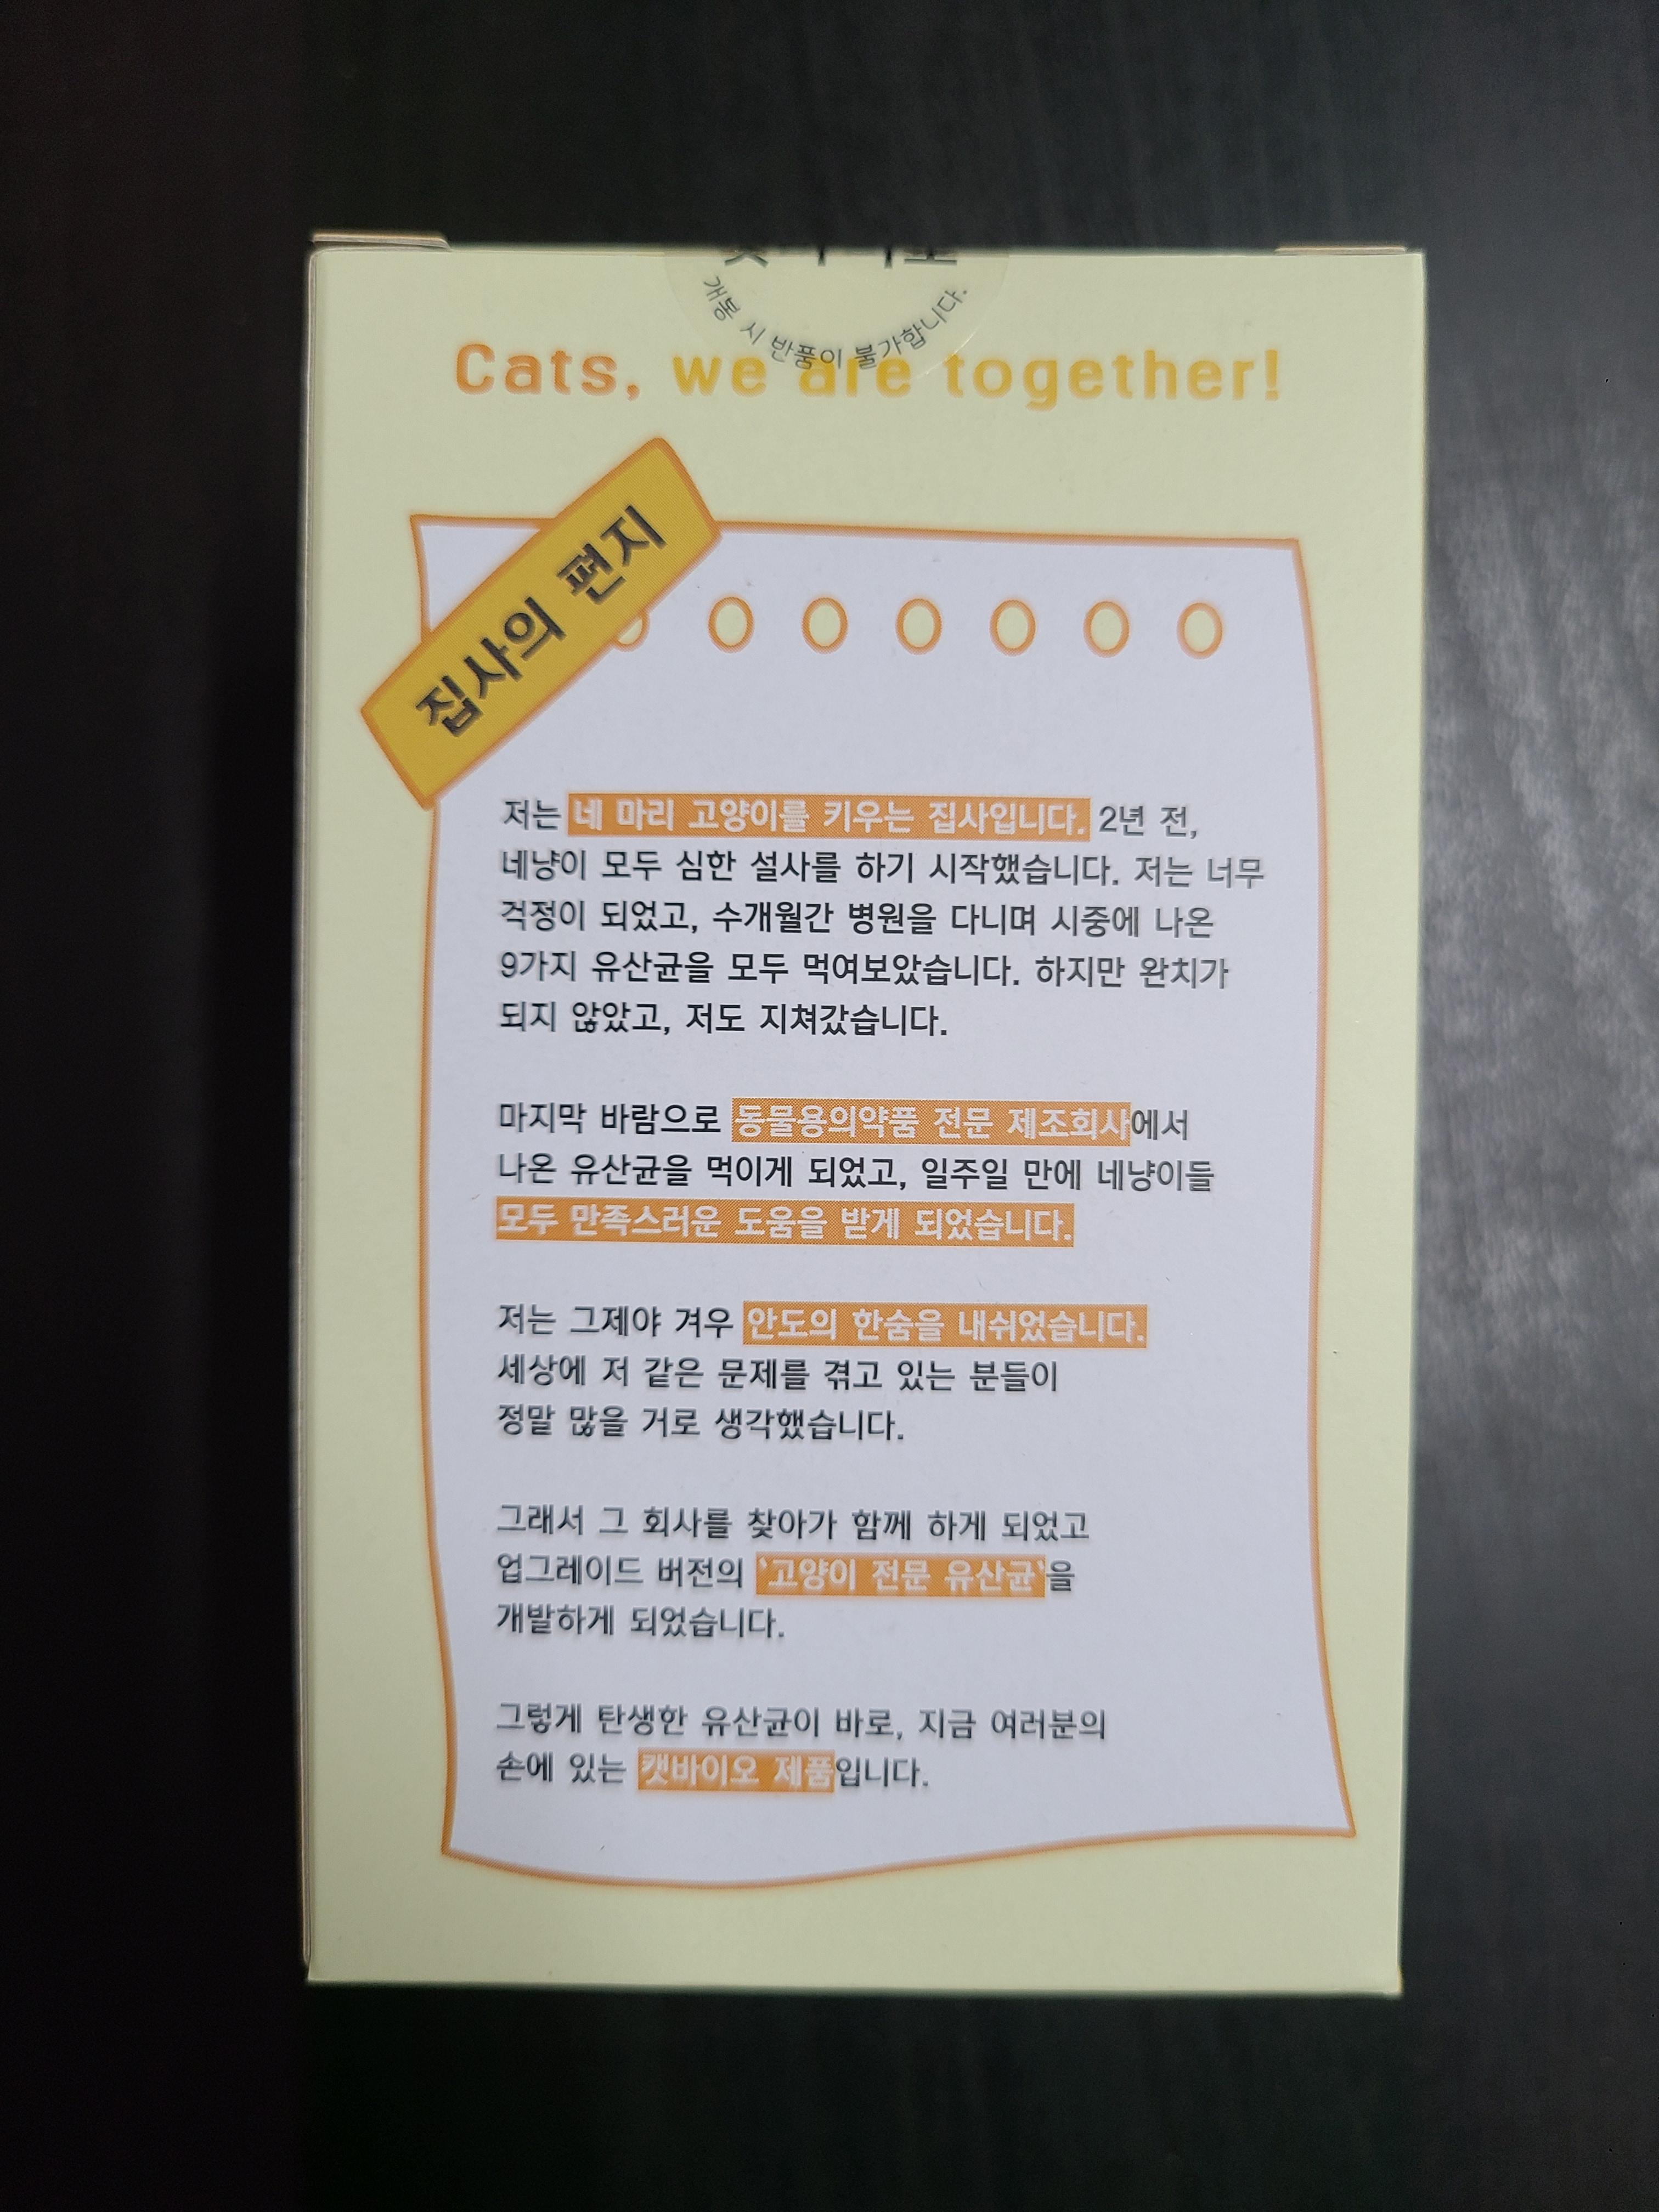 개봉 시 반품이 불가합니다.
Cats, we are together!
집사의 편지
저는 네 마리 고양이를 키우는 집사입니다. 2년 전,
네냥이 모두 심한 설사를 하기 시작했습니다. 저는 너무
걱정이 되었고, 수개월간 병원을 다니며 시중에 나온
9가지 유산균을 모두 먹여보았습니다. 하지만 완치가
되지 않았고, 저도 지쳐갔습니다.
마지막 바람으로 동물용의약품 전문 제조회사에서
나온 유산균을 먹이게 되었고, 일주일 만에 네냥이들
모두 만족스러운 도움을 받게 되었습니다.
저는 그제야 겨우 안도의 한숨을 내쉬었습니다.
세상에 저 같은 문제를 겪고 있는 분들이
정말 많을 거로 생각했습니다.
그래서 그 회사를 찾아가 함께 하게 되었고
업그레이드 버전의 '고양이 전문 유산균'을
개발하게 되었습니다.
그렇게 탄생한 유산균이 바로, 지금 여러분의
손에 있는 캣바이오 제품입니다.